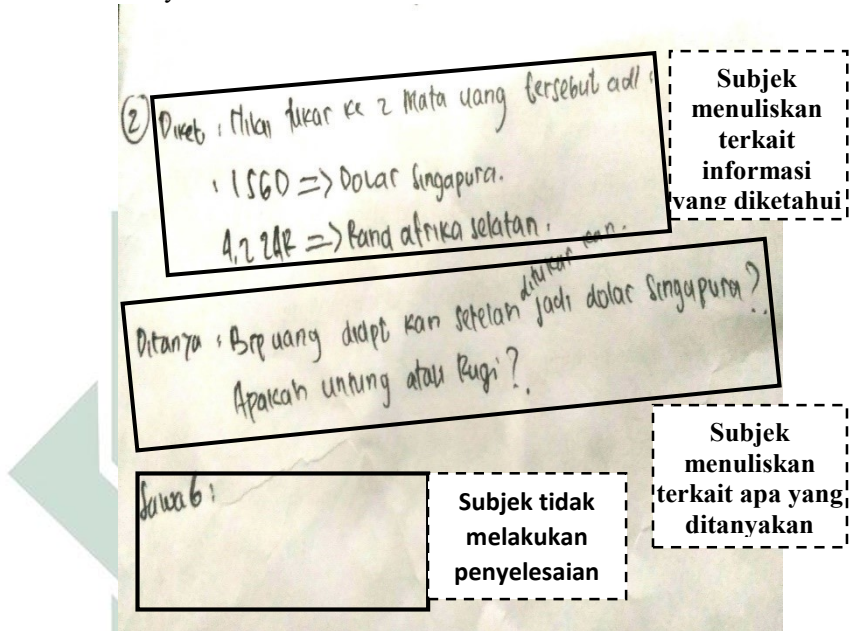 ②
Diket : Nilai tukar ke 2 Mata uang tersebut adl :
: 1 SGD => Dolar Singapura.
4,2 ZAR => Rand afrika selatan.
Subjek
menuliskan
terkait
informasi
yang diketahui
Ditanya : Brp uang didpt kan setelah ditukar kan jadi dolar Singapura?
Apakah untung atau Rugi?
Subjek
menuliskan
terkait apa yang
ditanyakan
Jawab :
Subjek tidak
melakukan
penyelesaian